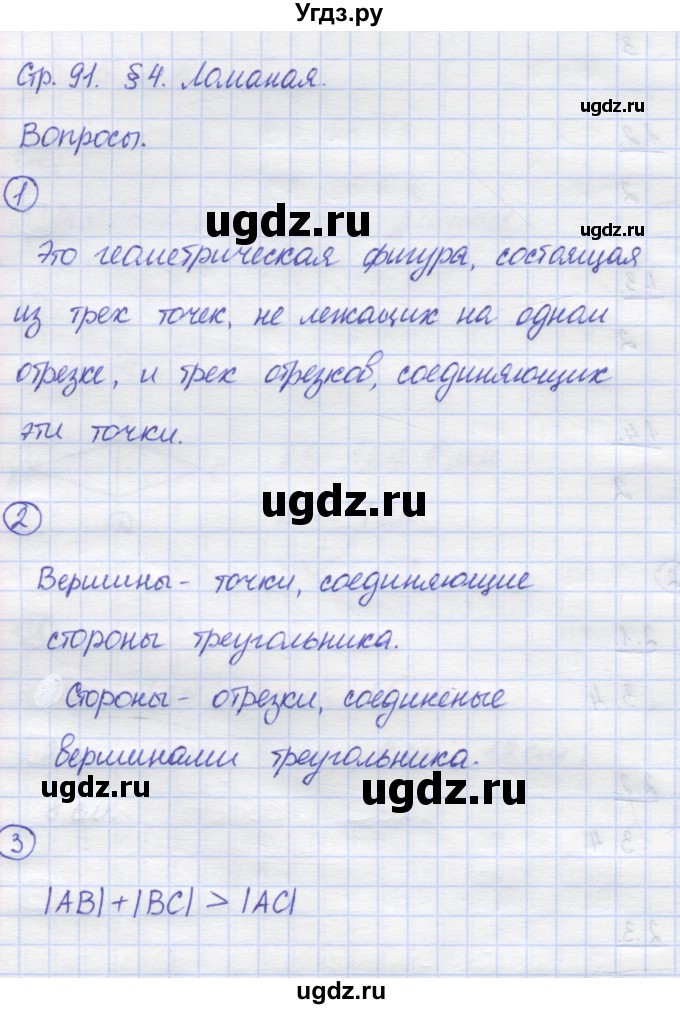 Угдз.ру
Стр. 91. § 4. Ломаная.
ugdz.ru
Вопросы.
1
ugdz.ru
ugdz.ru
Это геометрическая фигура, состоящая
из трех точек, не лежащих на одном
отрезке, и трех отрезков, соединяющих
эти точки.
ugdz.ru
2
Вершины - точки, соединяющие
стороны треугольника.
Стороны - отрезки, соединеные
вершинами треугольника.
ugdz.ru
ugdz.ru
3
|AB| + |BC| > |AC|
ugdz.ru